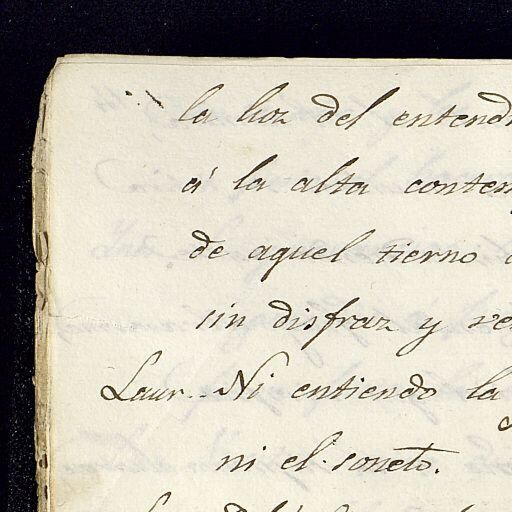 la luz del entend
á la alta contem
de aquel tierno
sin disfraz y ve
Laur.. Ni entiendo la
ni el soneto.